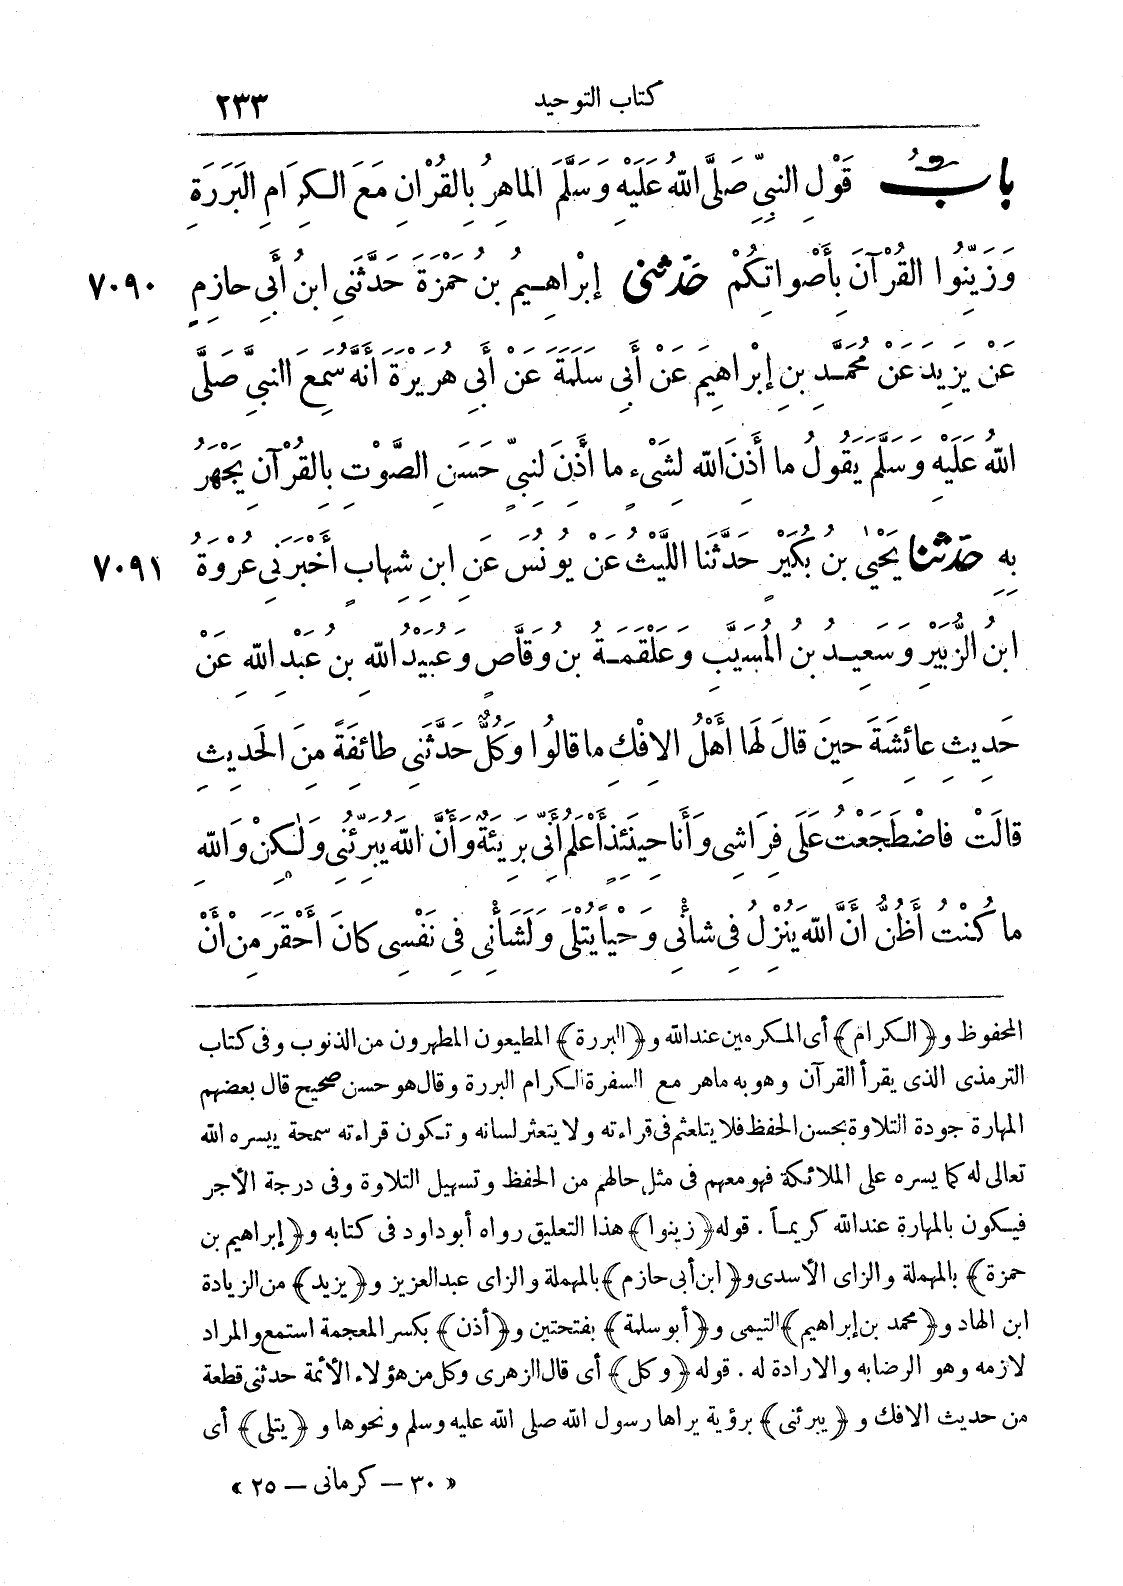 كتاب التوحيد ٢٣٣
بابُ قَوْلِ النبيِّ صَلَّى اللهُ عَلَيْهِ وَسَلَّمَ الماهِرُ بِالقُرْانِ مَعَ الكِرَامِ البَرَرَةِ
وَزَيِّنُوا القُرْآنَ بِأَصْواتِكُمْ حَدَّثني إبْراهِيمُ بنُ حَمْزَةَ حَدَّثَنِي ابنُ أَبي حازِمٍ ٧٠٩٠
عَنْ يَزِيدَ عَنْ مُحَمَّدِ بنِ إبْراهِيَم عَنْ أَبِي سَلَمَةَ عَنْ أَبِي هُرَيْرَةَ أَنَّهُ سَمِعَ النبيَّ صَلَّى
اللهُ عَلَيْهِ وَسَلَّمَ يَقُولُ ما أَذِنَ اللهُ لِشَيْءٍ ما أَذِنَ لِنبيٍّ حَسَنِ الصَّوْتِ بِالقُرْآنِ يَجْهَرُ
بِهِ حَدَّثَنا يَحْيٰي بنُ بُكَيْرٍ حَدَّثَنَا اللَّيْثُ عَنْ يُونُسَ عَنِ ابنِ شِهابٍ أَخْبَرَنِي عُرْوَةُ ٧٠٩١
ابنُ الزُّبَيْرِ وَسَعِيدُ بنُ المُسَيَّبِ وَعَلْقَمَةُ بنُ وَقَّاصٍ وَعُبَيْدُ اللهِ بنُ عَبْدِ اللهِ عَنْ
حَدِيثِ عائِشَةَ حِينَ قالَ لَهَا أَهْلُ الإفْكِ ما قالُوا وَكُلٌّ حَدَّثَنِي طائِفَةً مِنَ الحَدِيثِ
قالَتْ فاضْطَجَعْتُ عَلَى فِرَاشِي وَأَنا حِينَئِذٍ أَعْلَمُ أَنِّي بَرِيئَةٌ وَأَنَّ اللهَ يُبَرِّئُنِي وَلٰكِنْ وَاللهِ
ما كُنْتُ أَظُنُّ أَنَّ اللهَ يَنْزِلُ فِي شأْنِي وَحْياً يُتْلَى وَلَشَأْنِي فِي نَفْسِي كانَ أَحْقَرَ مِنْ أَنْ
المحفوظ و﴿الكرام﴾ أى المكرمين عندالله و﴿البررة﴾ المطيعون المطهرون من الذنوب وفى كتاب
الترمذى الذى يقرأ القرآن وهو به ماهر مع السفرة الكرام البررة وقال هو حسن صحيح قال بعضهم
المهارة جودة التلاوة بحسن الحفظ فلا يتلعثم فى قراءته ولا يتعثر لسانه وتكون قراءته سمحة ييسره الله
تعالى له كما يسره على الملائكة فهو معهم فى مثل حالهم من الحفظ وتسهيل التلاوة وفى درجة الأجر
فيكون بالمهارة عندالله كريماً . قوله ﴿زينوا﴾ هذا التعليق رواه أبوداود فى كتابه و﴿إبراهيم بن
حمزة﴾ بالمهملة والزاى الأسدى و﴿ابن أبى حازم﴾ بالمهملة والزاى عبدالعزيز و﴿يزيد﴾ من الزيادة
ابن الهاد و﴿محمد بن إبراهيم﴾ التيمى و﴿أبو سلمة﴾ بفتحتين و﴿أذن﴾ بكسر المعجمة استمع والمراد
لازمه وهو الرضابه والارادة له . قوله ﴿وكل﴾ أى قال الزهرى وكل من هؤلاء الأئمة حدثنى قطعة
من حديث الافك و﴿يبرئنى﴾ برؤية يراها رسول الله صلى الله عليه وسلم ونحوها و﴿يتلى﴾ أى
« ٣٠ — كرمانى — ٢٥ »